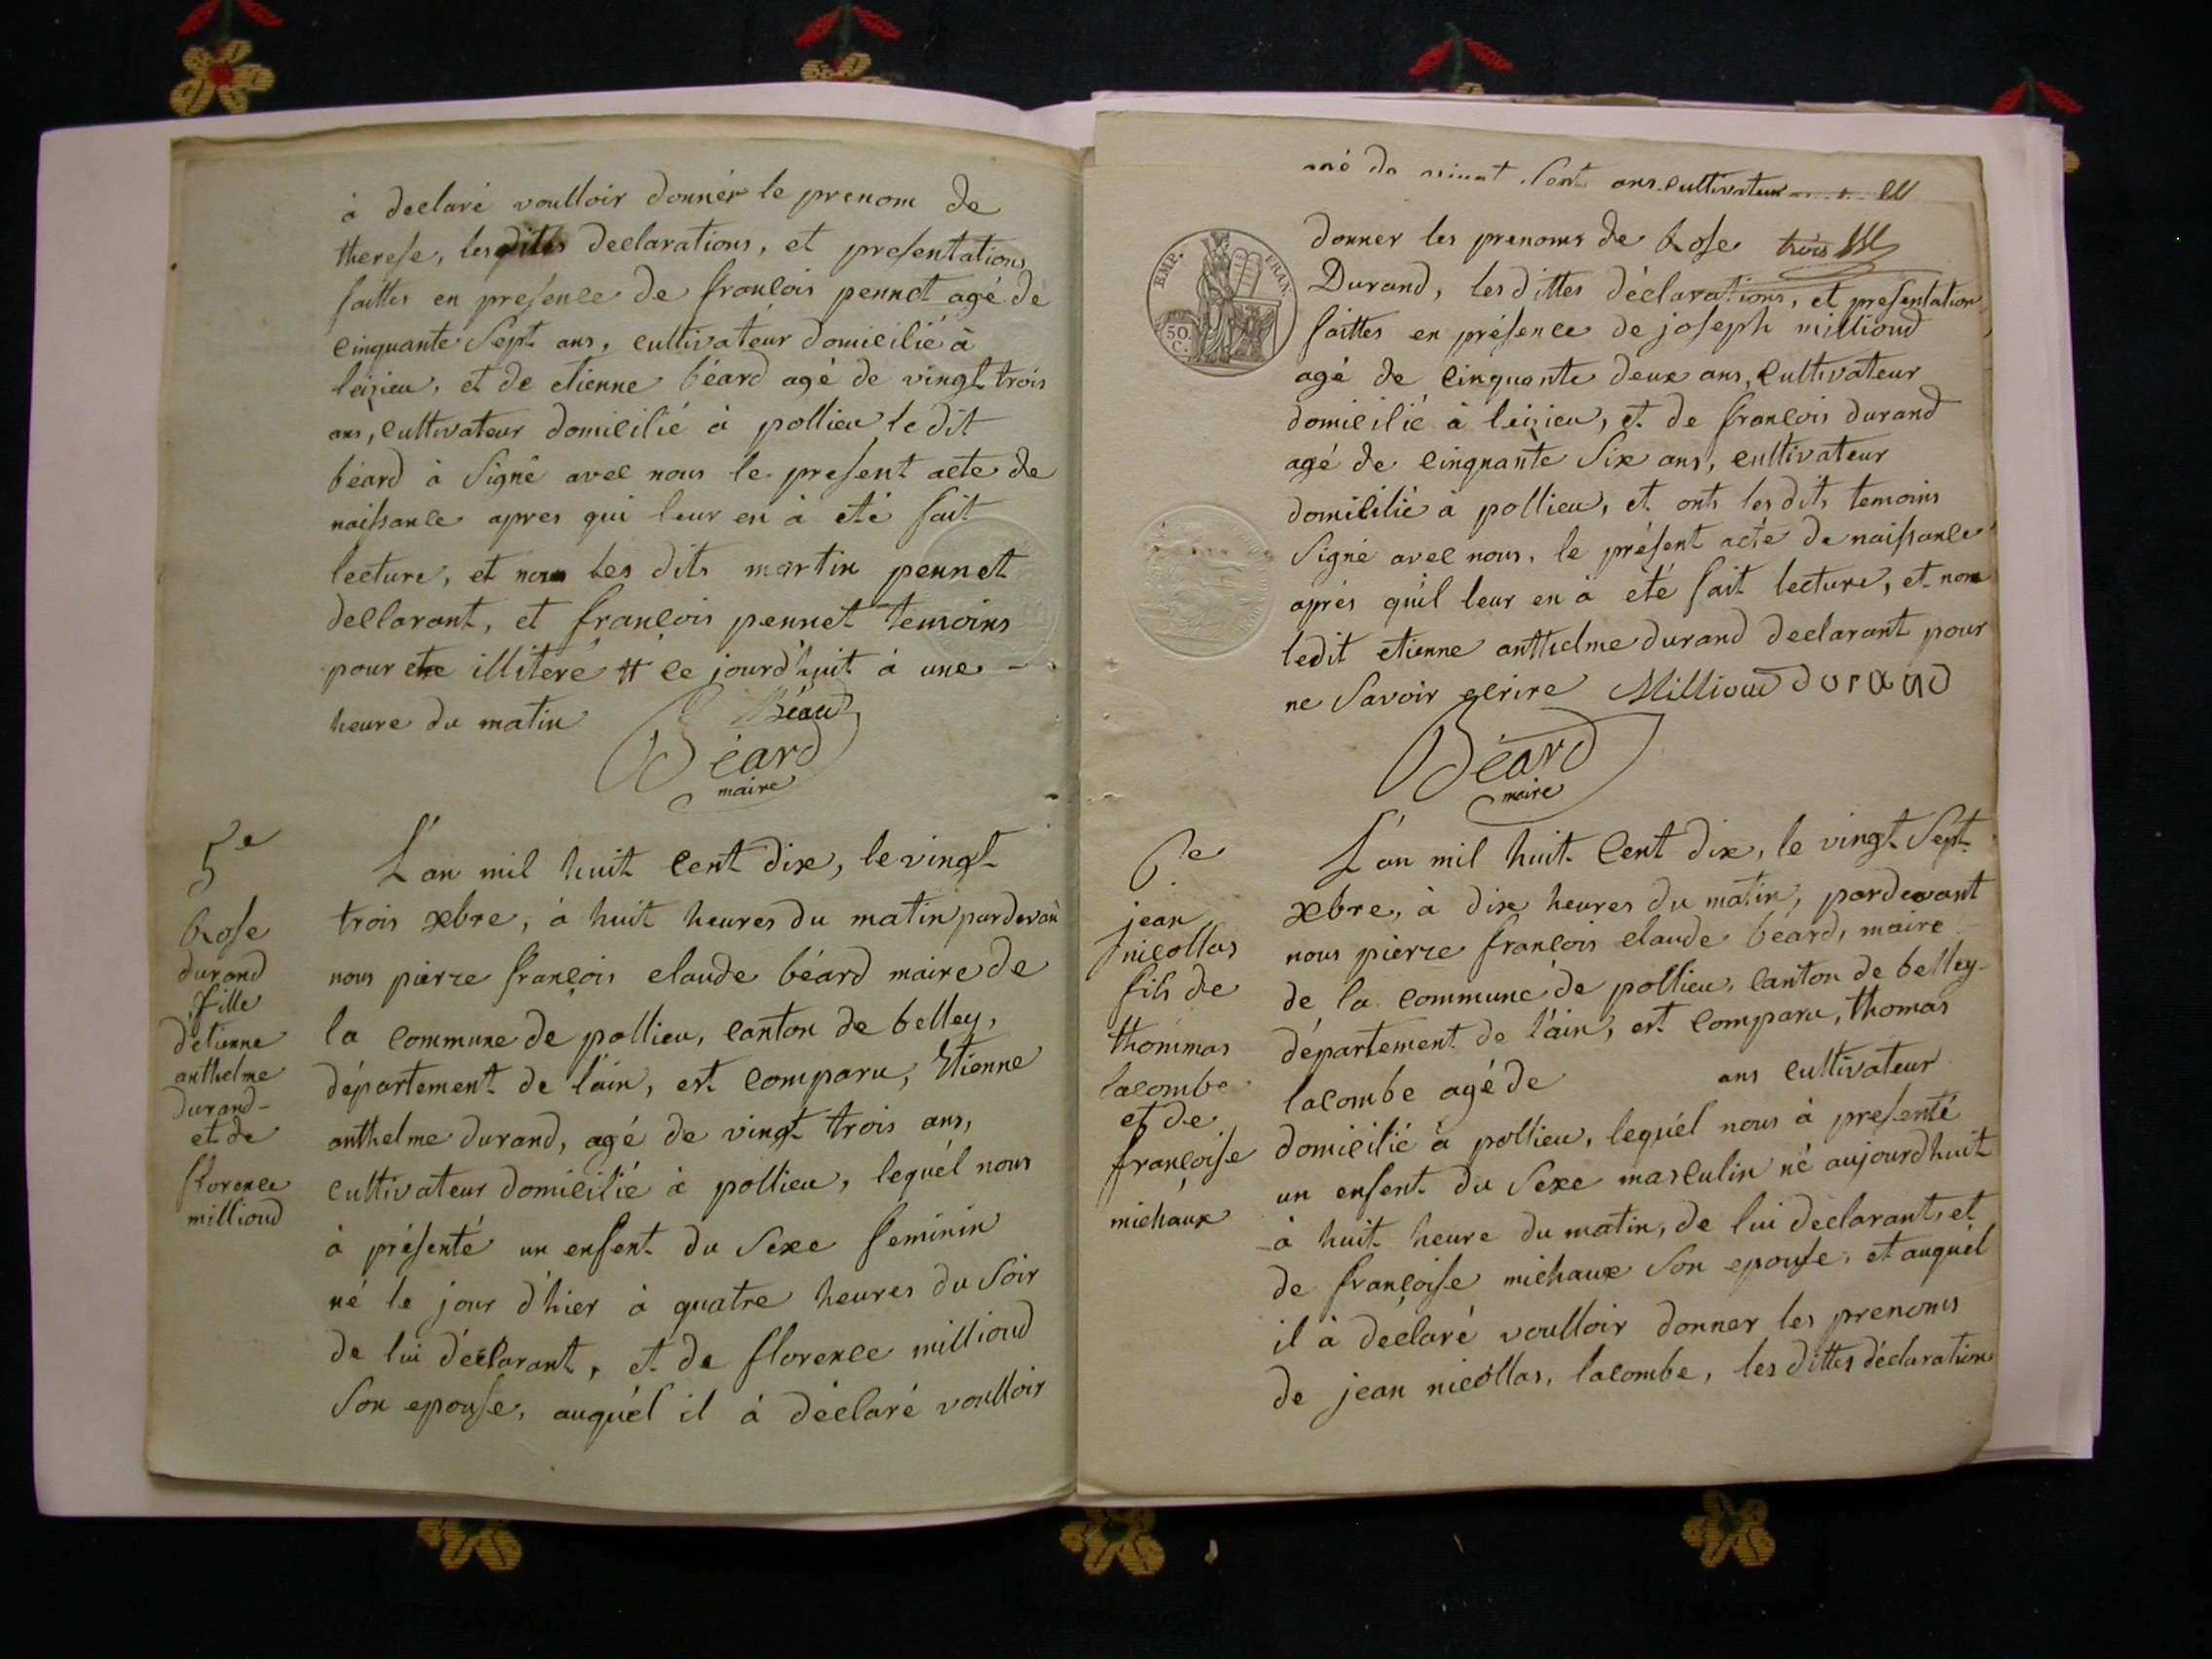 à declaré voulloir donnér le prenom de
therese, les dites declarations, et presentations
faittes en presence de françois pennet agé de
cinquante Sept ans, cultivateur domicilié à
leizieu, et de etienne béard agé de vingt trois
ans, cultivateur domicilié à pollieu le dit
béard à Signé avec nous le present acte de
naissance apres qui leur en à eté fait
lecture, et non les dits martin pennet
declarant, et françois pennet temoins
pour etre illiteré # ce jourd'huit à une
heure du matin Béard
Béard
maire
5e
Rose
durand
fille
d'etienne
anthelme
durand
et de
florence
milliond
L'an mil huit cent dix, le vingt
trois xbre, à huit heures du matin pardevan
nous pierre françois claude béard maire de
la commune de pollieu, canton de belley,
département de l'ain, est comparu, Etienne
anthelme durand, agé de vingt trois ans,
cultivateur domicilié à pollieu, lequél nous
à présenté un enfent du Sexe feminin
né le jour d'hier à quatre heures du Soir
de lui déclarant, et de florence milliond
Son epouse, auquél il à déclaré voulloir
ans cultivateur
EMP. FRAN.
50
C.
donner les prenoms de Rose trois
Durand, les dittes déclarations, et presentation
faittes en présence de joseph milliond
agé de cinquante deux ans, cultivateur
domicilié à leizieu, et de françois durand
agé de cinquante Six ans, cultivateur
domicilié à pollieu, et onts les dits temoins
Signé avec nous, le présent acte de naissance
aprés qu'il leur en à eté fait lecture, et non
ledit etienne anthelme durand declarant pour
ne Savoir ecrire Milliond durand
Béard
maire
6e
jean
nicollas
fils de
thommas
lacombe
et de
françoise
michaux
L'an mil huit cent dix, le vingt Sept
xbre, à dix heures du matin, pardevant
nous pierre françois claude béard, maire
de la commune de pollieu, canton de belley
département de l'ain, est comparu, thomas
lacombe agé de ans cultivateur
domicilié à pollieu, lequél nous à presenté
un enfent du Sexe masculin né aujourdhuit
à huit heure du matin, de lui declarant, et
de françoise michaux Son epouse, et auquél
il à declaré voulloir donner les prenoms
de jean nicollas, lacombe, les dittes déclaration